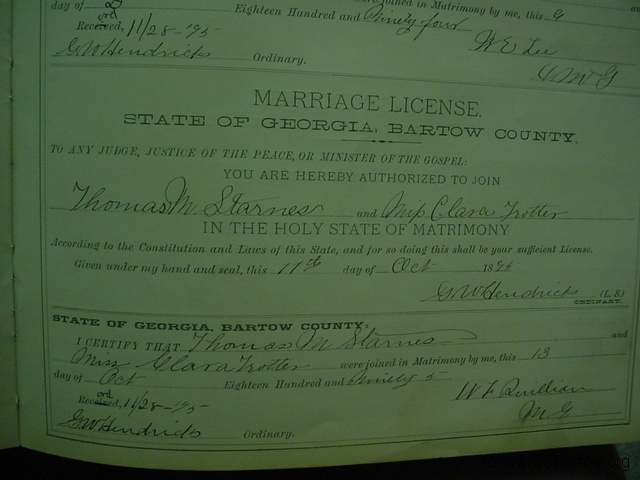 day of Eighteen Hundred and Ninety four
were joined in Matrimony by me, this 9
Received, 11/28-'95 W E Lee
G W Hendricks Ordinary.
MARRIAGE LICENSE.
STATE OF GEORGIA, BARTOW COUNTY.
TO ANY JUDGE, JUSTICE OF THE PEACE, OR MINISTER OF THE GOSPEL:
YOU ARE HEREBY AUTHORIZED TO JOIN
Thomas M. Starnes and Miss Clara Trotter
IN THE HOLY STATE OF MATRIMONY
According to the Constitution and Laws of this State, and for so doing this shall be your sufficient License.
Given under my hand and seal, this 11th day of Oct 1895
G W Hendricks (L. S.)
ORDINARY.
STATE OF GEORGIA, BARTOW COUNTY,
I CERTIFY THAT Thomas M Starnes and
Miss Clara Trotter were joined in Matrimony by me, this 13
day of Oct Eighteen Hundred and Ninety 5
W F Quillian
Received, 11/28-'95 M G
G W Hendricks Ordinary.